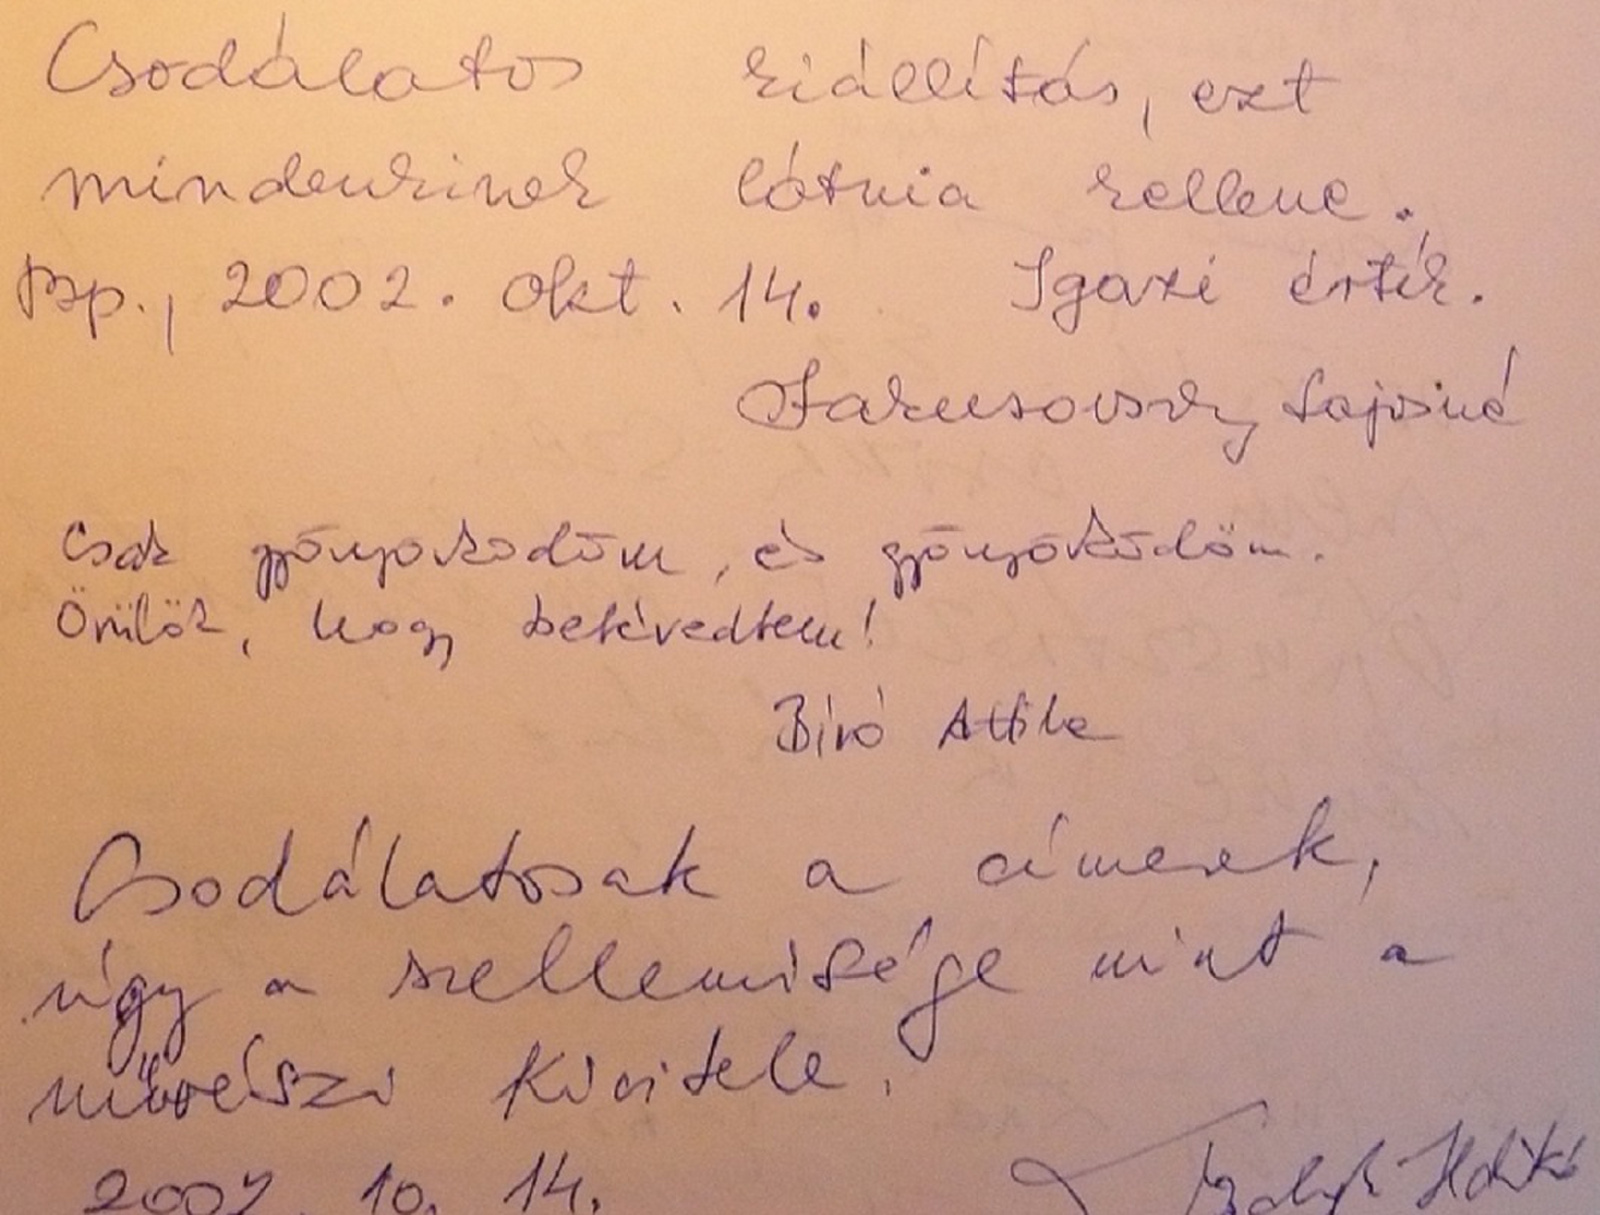 Csodálatos kiállítás, ezt
mindenkinek látnia kellene.
Bp., 2002. okt. 14. Igazi érték.
Lajosné
Csak gyönyörködöm, és gyönyörködöm.
Örülök, hogy betévedtem!
Bíró Attila
Csodálatosak a címerek,
úgy a szellemisége mint a
művészi kivitele.
2002. 10. 14.
Ildikó